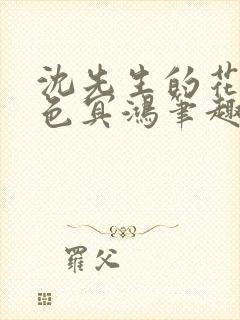 沈先生的花
色冥鴻筆趣
羅父